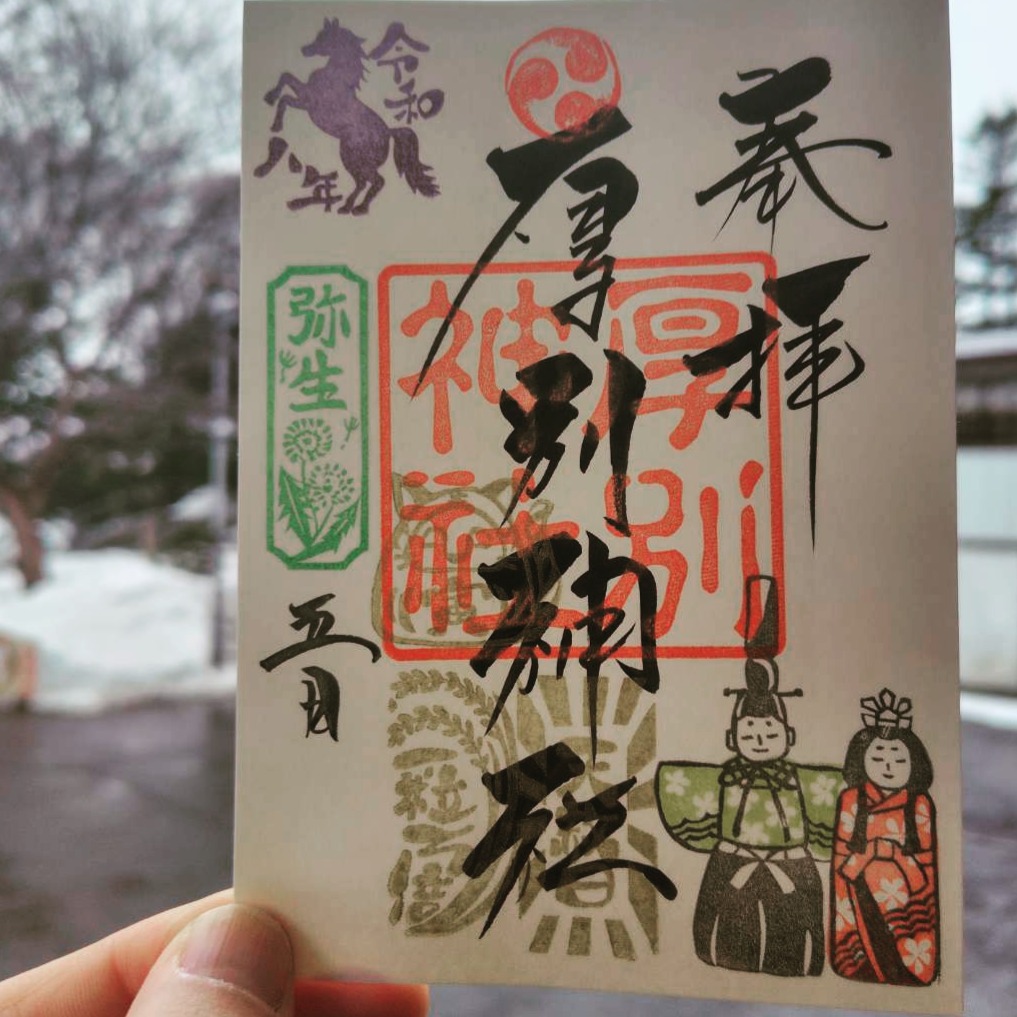 奉拝
厚別神社
厚別
神社
令和
八年
弥生
五日
一粒万倍
天赦日